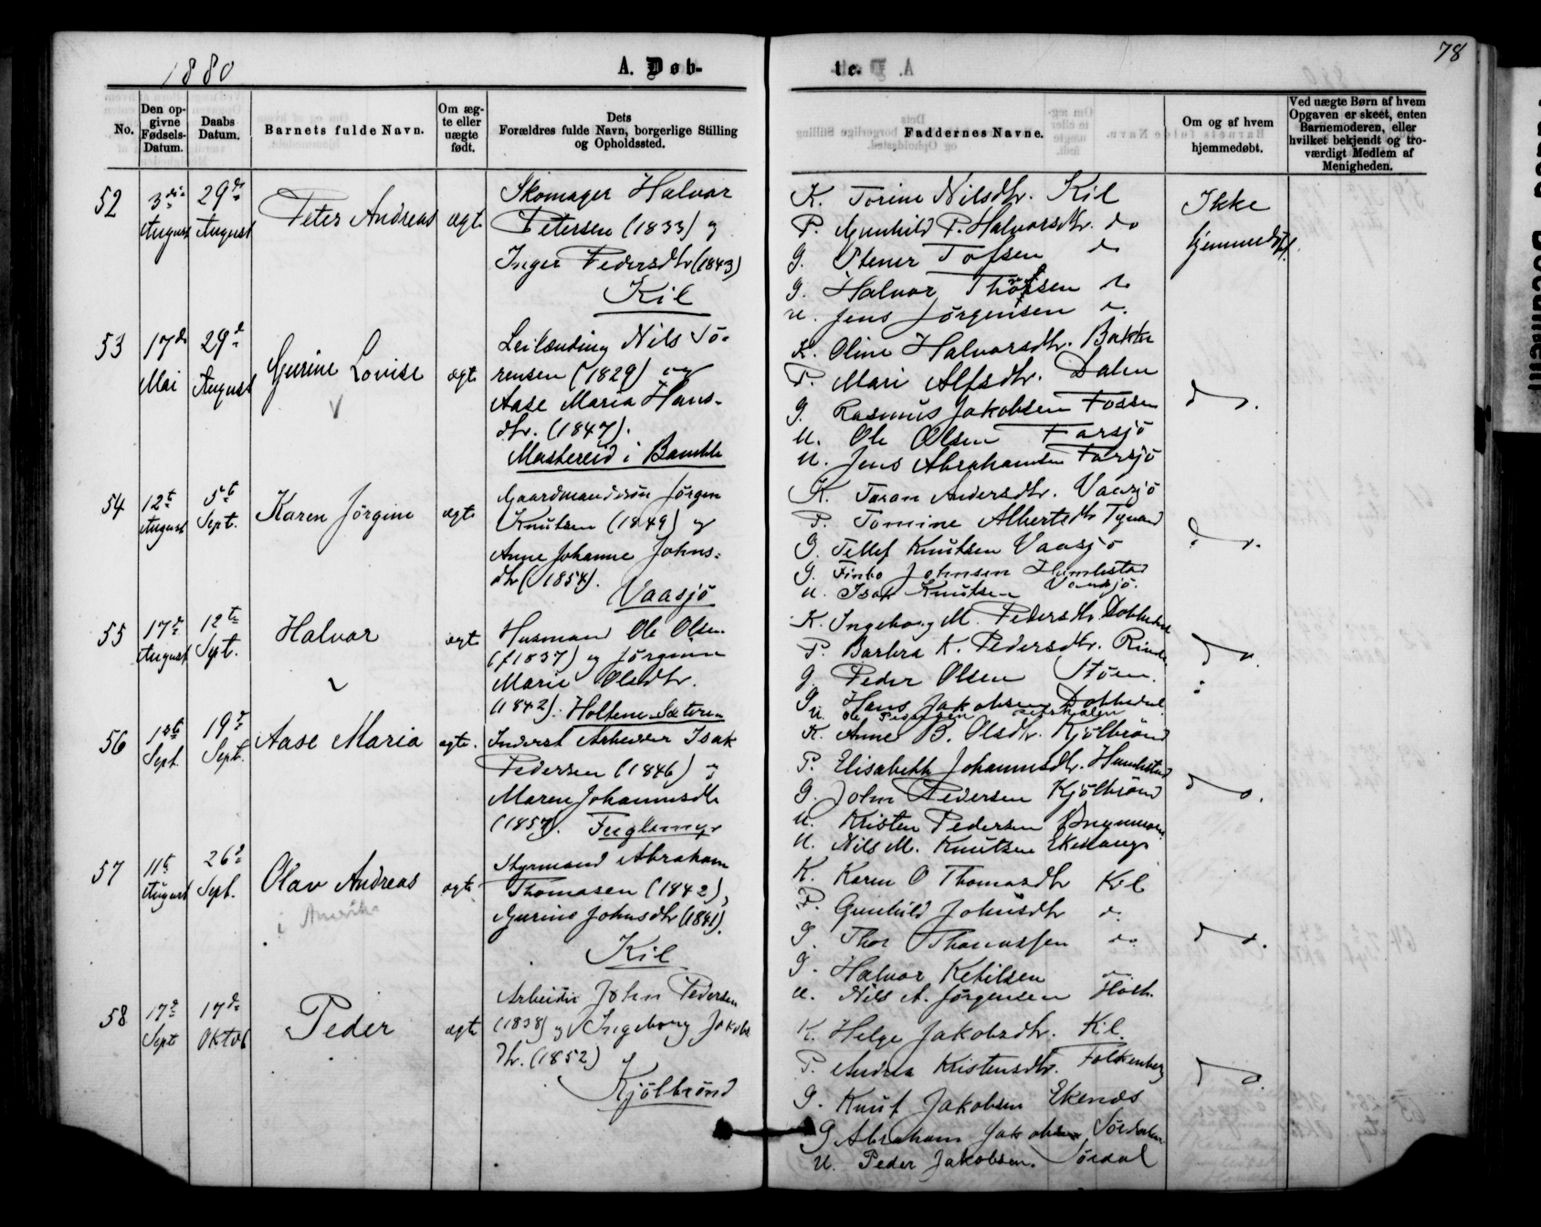 1880
A. Døb-
te.
78
No.
Den op-
givne
Fødsels-
Datum.
Daabs
Datum.
Barnets fulde Navn.
Om æg-
te eller
uægte
født.
Dets
Forældres fulde Navn, borgerlige Stilling
og Opholdssted.
Faddernes Navne.
Om og af hvem
hjemmedøbt.
Ved uægte Børn af hvem
Opgaven er skeet, enten
Barnemoderen, eller
hvilket bekjendt og tro-
værdigt Medlem af
Menigheden.
52
3die
August
29de
August
Peter Andreas
ægte
Skomager Halvor
Petersen (1833) og
Inger Pedersdtr (1843)
Kil
K. Torine Nilsdtr. Kil
P. Gunhild P. Halvorsdtr. do
G. Stener Tofsen do
G. Halvor Thorsen do
U. Jens Jørgensen do
Ikke
hjemmedøbt.
53
17de
Mai
29de
August
Gurine Lovise
ægte
Leilænding Nils Sø-
rensen (1829) og
Aase Maria Hans-
dtr. (1847).
Mastereid i Bamble
K. Oline Halvorsdtr. Bakke
P. Mari Alfsdtr. Dalen
G. Rasmus Jakobsen Fossen
U. Ole Olsen Farsjø
U. Jens Abrahamsen Farsjø
do.
54
12te
August
5te
Sept.
Karen Jørgine
ægte
Gaardmandssøn Jørgen
Knutsen (1849) og
Anne Johanne Johns-
dtr (1854).
Vaasjø
K. Taran Andersdtr. Vaasjø
P. Tomine Albertsdtr
G. Tellef Knutsen Vaasjø
G. Johnsen Humlestad
U. Isak Knutsen Vaasjø.
do.
55
17de
August
12te
Sept.
Halvor
ægte
Husmand Ole Olsen
(1837) og Jørgine
Marie Olsdtr.
(1842). Holtene Sæteren
K. Ingeborg M. Pedersdtr Dobbedal
P. Barbra K. Pedersdtr.
G. Peder Olsen Støen.
G. Hans Jakobsen Dobbedal
do.
56
Sept.
19de
Sept.
Aase Maria
ægte.
Inderst Arbeider Isak
Pedersen (1846) og
Maren Johannesdtr
(1857). Fuglemyr
K. Anne B. Olsdtr. Kjølbrønd
P. Elisabeth Johannesdtr. Humlestad
G. John Pedersen Kjølbrønd
U. Kristen Pedersen
U. Nils M. Knutsen
do.
57
11te
August
26de
Sept.
Olav Andreas
i Amerika
ægte
Styrmand Abraham
Thomasen (1842),
Gurine Johnsdtr (1841).
Kil
K. Karen O Thomasdtr Kil
P. Gunhild Johnsdtr do
G. Thor Thomassen do
G. Halvor Ketilsen
U. Nils A. Jørgensen Holt.
do.
58
17de
Sept
17de
Oktob
Peder
ægte
Arbeider John Pedersen
(1838) og Ingeborg Jakobs
dtr. (1852)
Kjølbrønd
K. Helge Jakobsdtr. Kil
P. Andrea Kristensdtr. Falkenberg
G. Knut Jakobsen Ekenæs
G Abraham Jakobsen Sørdalen
U. Peder Jakobsen. Sørdal
do.